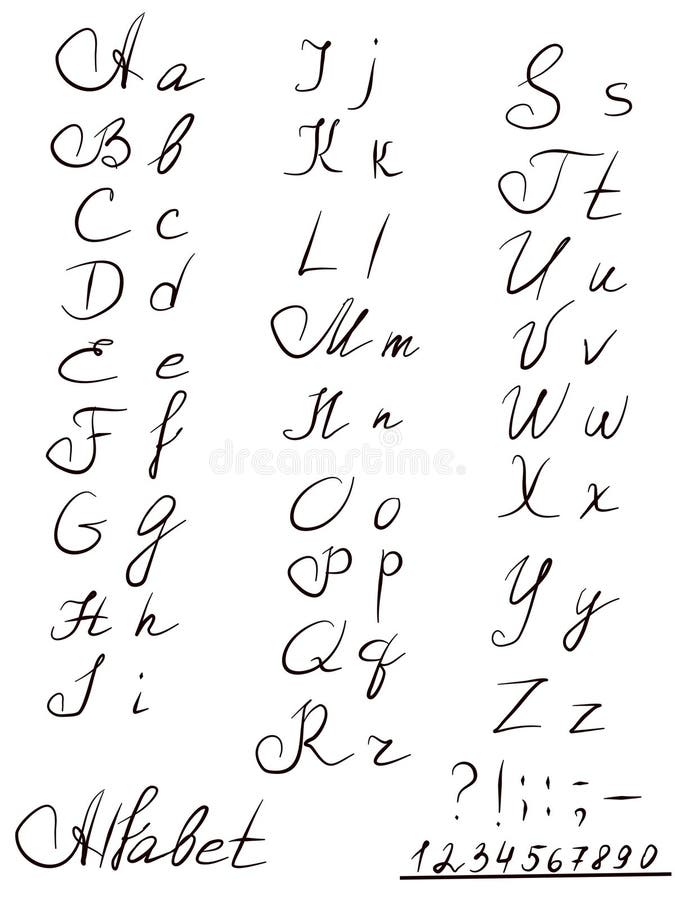 A a
B b
C c
D d
E e
F f
G g
H h
I i
J j
K k
L l
M m
N n
O o
P p
Q q
R r
S s
T t
U u
V v
W w
X x
Y y
Z z
? ! ; : ; –
1 2 3 4 5 6 7 8 9 0
Alfabet
dreamstime.